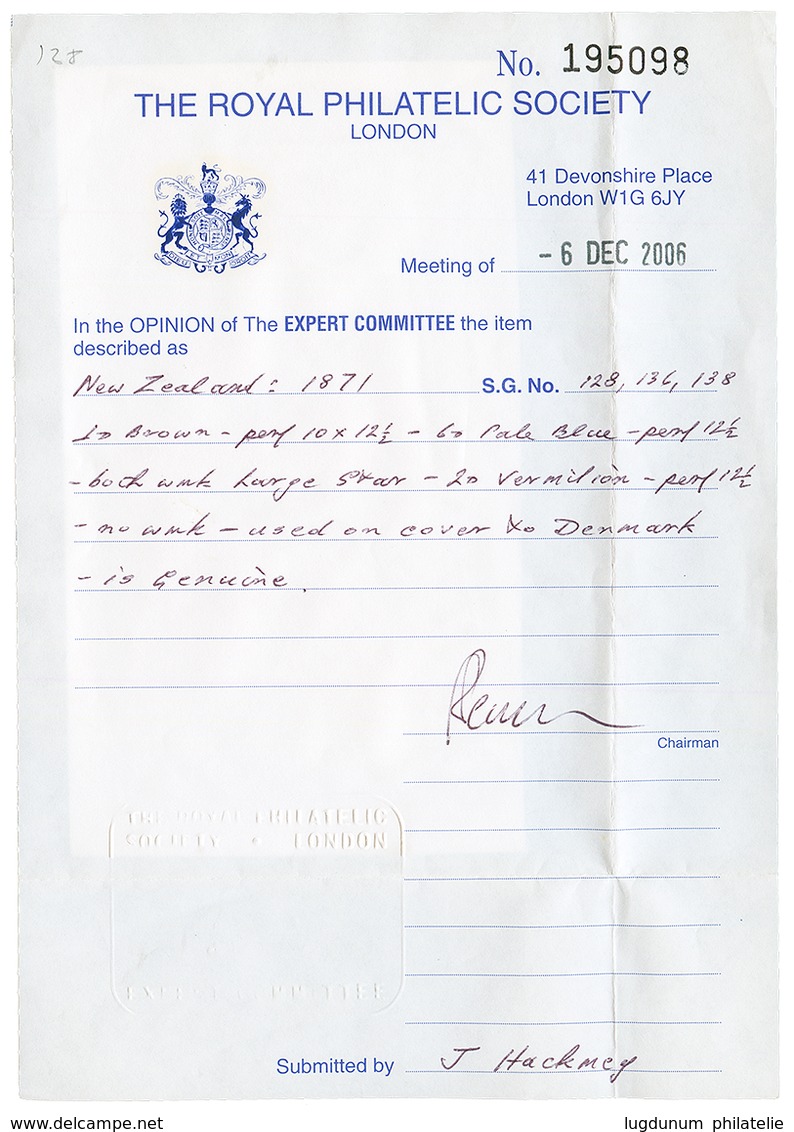 128
No. 195098
THE ROYAL PHILATELIC SOCIETY
LONDON
41 Devonshire Place
London W1G 6JY
Meeting of - 6 DEC 2006
In the OPINION of The EXPERT COMMITTEE the item
described as
New Zealand: 1871 S.G. No. 128, 136, 138
1d Brown - perf 10 x 12½ - 6d Pale Blue - perf 12½
- both wmk Large Star - 2d Vermilion - perf 12½
- no wmk - used on cover to Denmark
- is Genuine.
Chairman
THE ROYAL PHILATELIC
SOCIETY • LONDON
EXPERT COMMITTEE
Submitted by J Hackmey
www.delcampe.net
lugdunum philatelie